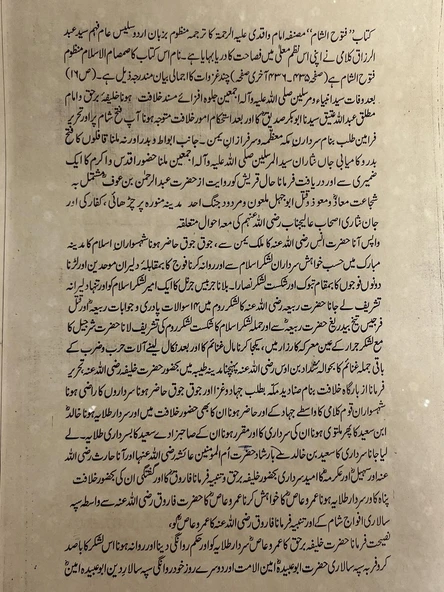 کتاب "فتوح الشام" مصنفہ امام واقدی علیہ الرحمۃ کا ترجمہ منظوم بزبان اردو سلیس عام فہم سید عبد
الرزاق کلامی نے اپنی اس نظم معلی میں فصاحت کا دریا بہایا ہے۔ نام اس کتاب کا صمصام الاسلام منظوم
فتوح الشام ہے (صفحہ ۴۳۵-۴۳۶ آخری صفحہ) چند غزوات کا اجمالی بیان مندرجہ ذیل ہے۔ (ص ۱۶)
بعد وفات سید انبیاء و مرسلین صلی اللہ علیہ وآلہ اجمعین جلوہ افزائے مسند خلافت ہونا خلیفہ برحق و امام
مطلق عبد اللہ عتیق سیدنا ابوبکر صدیقؓ کا اور بعد استحکام امور خلافت متوجہ ہونا آپ کا فتح شام پر اور تحریر
فرامین طلب بنام سرداران مکہ معظمہ و سرفرازان یمن۔ جانب ابواط و بدر اور نہ ملنا قافلوں کا فتح
بدر و کامیابی جاں نثاران سید المرسلین صلی اللہ علیہ وآلہ اجمعین ملنا حضور اقدس و اکرم کا ایک
ضمیری سے اور دریافت فرمانا حال قریش کو روایت از حضرت عبدالرحمٰن بن عوف مشتمل بہ
شجاعت معاذ و معوذ و قتل ابوجہل ملعون و مردود جنگ احد مدینہ منورہ پر چڑھائی، کفار کی اور
جان نثاری اصحاب عالیجناب رضی اللہ عنہم کی معہ احوال متعلقہ
واپس آنا حضرت انس رضی اللہ عنہ کا ملک یمن سے، جوق جوق حاضر ہونا شہسواران اسلام کا مدینہ
مبارک میں حسب خواہش سرداران لشکر اسلام سے اور روانہ کرنا فوج کا بمقابلہ دلیران موحدین اور لڑنا
دونوں فوجوں کا بمقام تبوک اور شکست لشکر نصارا۔ بلانا جرجیس جرنل کا ایک امیر لشکر اسلام کو اور تنہا دلیرانہ
تشریف لے جانا حضرت ربیعہ رضی اللہ عنہ کا لشکر روم میں ۱۴ سوالات پادری و جوابات ربیعہؓ اور قتل
جرجیس تیغ بیدریغ حضرت ربیعہؓ سے اور حملہ لشکر اسلام کا شکست لشکر روم کی تشریف لانا حضرت شرجیل کا
مع لشکر جرار کے عین معرکہ کارزار میں، یکجا کرنا مال غنائم کا اور بعد نکال لینے آلات حرب و ضرب کے
باقی جملہ غنائم کا بحوالہ شداد بن اوس رضی اللہ عنہ پہنچنا مدینہ طیبہ میں بحضور حضرت خلیفہ رضی اللہ عنہ، تحریر
فرمانا از بارگاہ خلافت بنام صنادید مکہ بطلب جہاد و غزا اور جوق جوق حاضر ہونا سرداروں کا راضی ہونا
شہسواران قوم کلامی کا واسطے جہاد کے اور حاضر ہونا ان کا بھی حضور خلافت میں اور سردار طلایہ ہونا خالدؓ
ابن سعید کا پھر ملتوی ہونا ان کی سرداری کا اور مقرر ہونا ان کے صاحبزادے سعید کا بسرداری طلایہ۔ لے
لیا جانا سرداری کا سعید بن خالد سے بارشاد حضرت ام المومنین عائشہ رضی اللہ عنہا اور آنا حارث رضی اللہ
عنہ اور سہیلؓ اور عکرمہؓ کا امید سرداری بحضور خلیفہ برحق و تنبیہ فرمانا فاروقؓ کا اور گفتگو ان کی بحضور خلافت
پناہ کا اور سردار طلایہ ہونا عمرو عاصؓ کا خواہش کرنا عمرو عاصؓ کا حضرت فاروق رضی اللہ عنہ سے واسطے سپہ
سالاری افواج شام کے اور تنبیہ فرمانا فاروق رضی اللہ عنہ کا عمرو عاصؓ کو،
نصیحت فرمانا حضرت خلیفہ برحق کا عمرو عاصؓ سردار طلایہ کو اور حکم روانگی دینا اور روانہ ہونا اس لشکر کا باصد
کروفر بہ سپہ سالاری حضرت ابو عبیدہؓ امین الامت اور دوسرے روز خود روانگی سپہ سالار دین ابو عبیدہ امینؓ